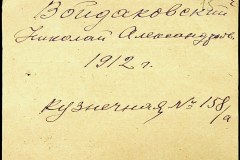 Войдаковский
Николай Александров.
1912 г.
Кузнечная № 158/а